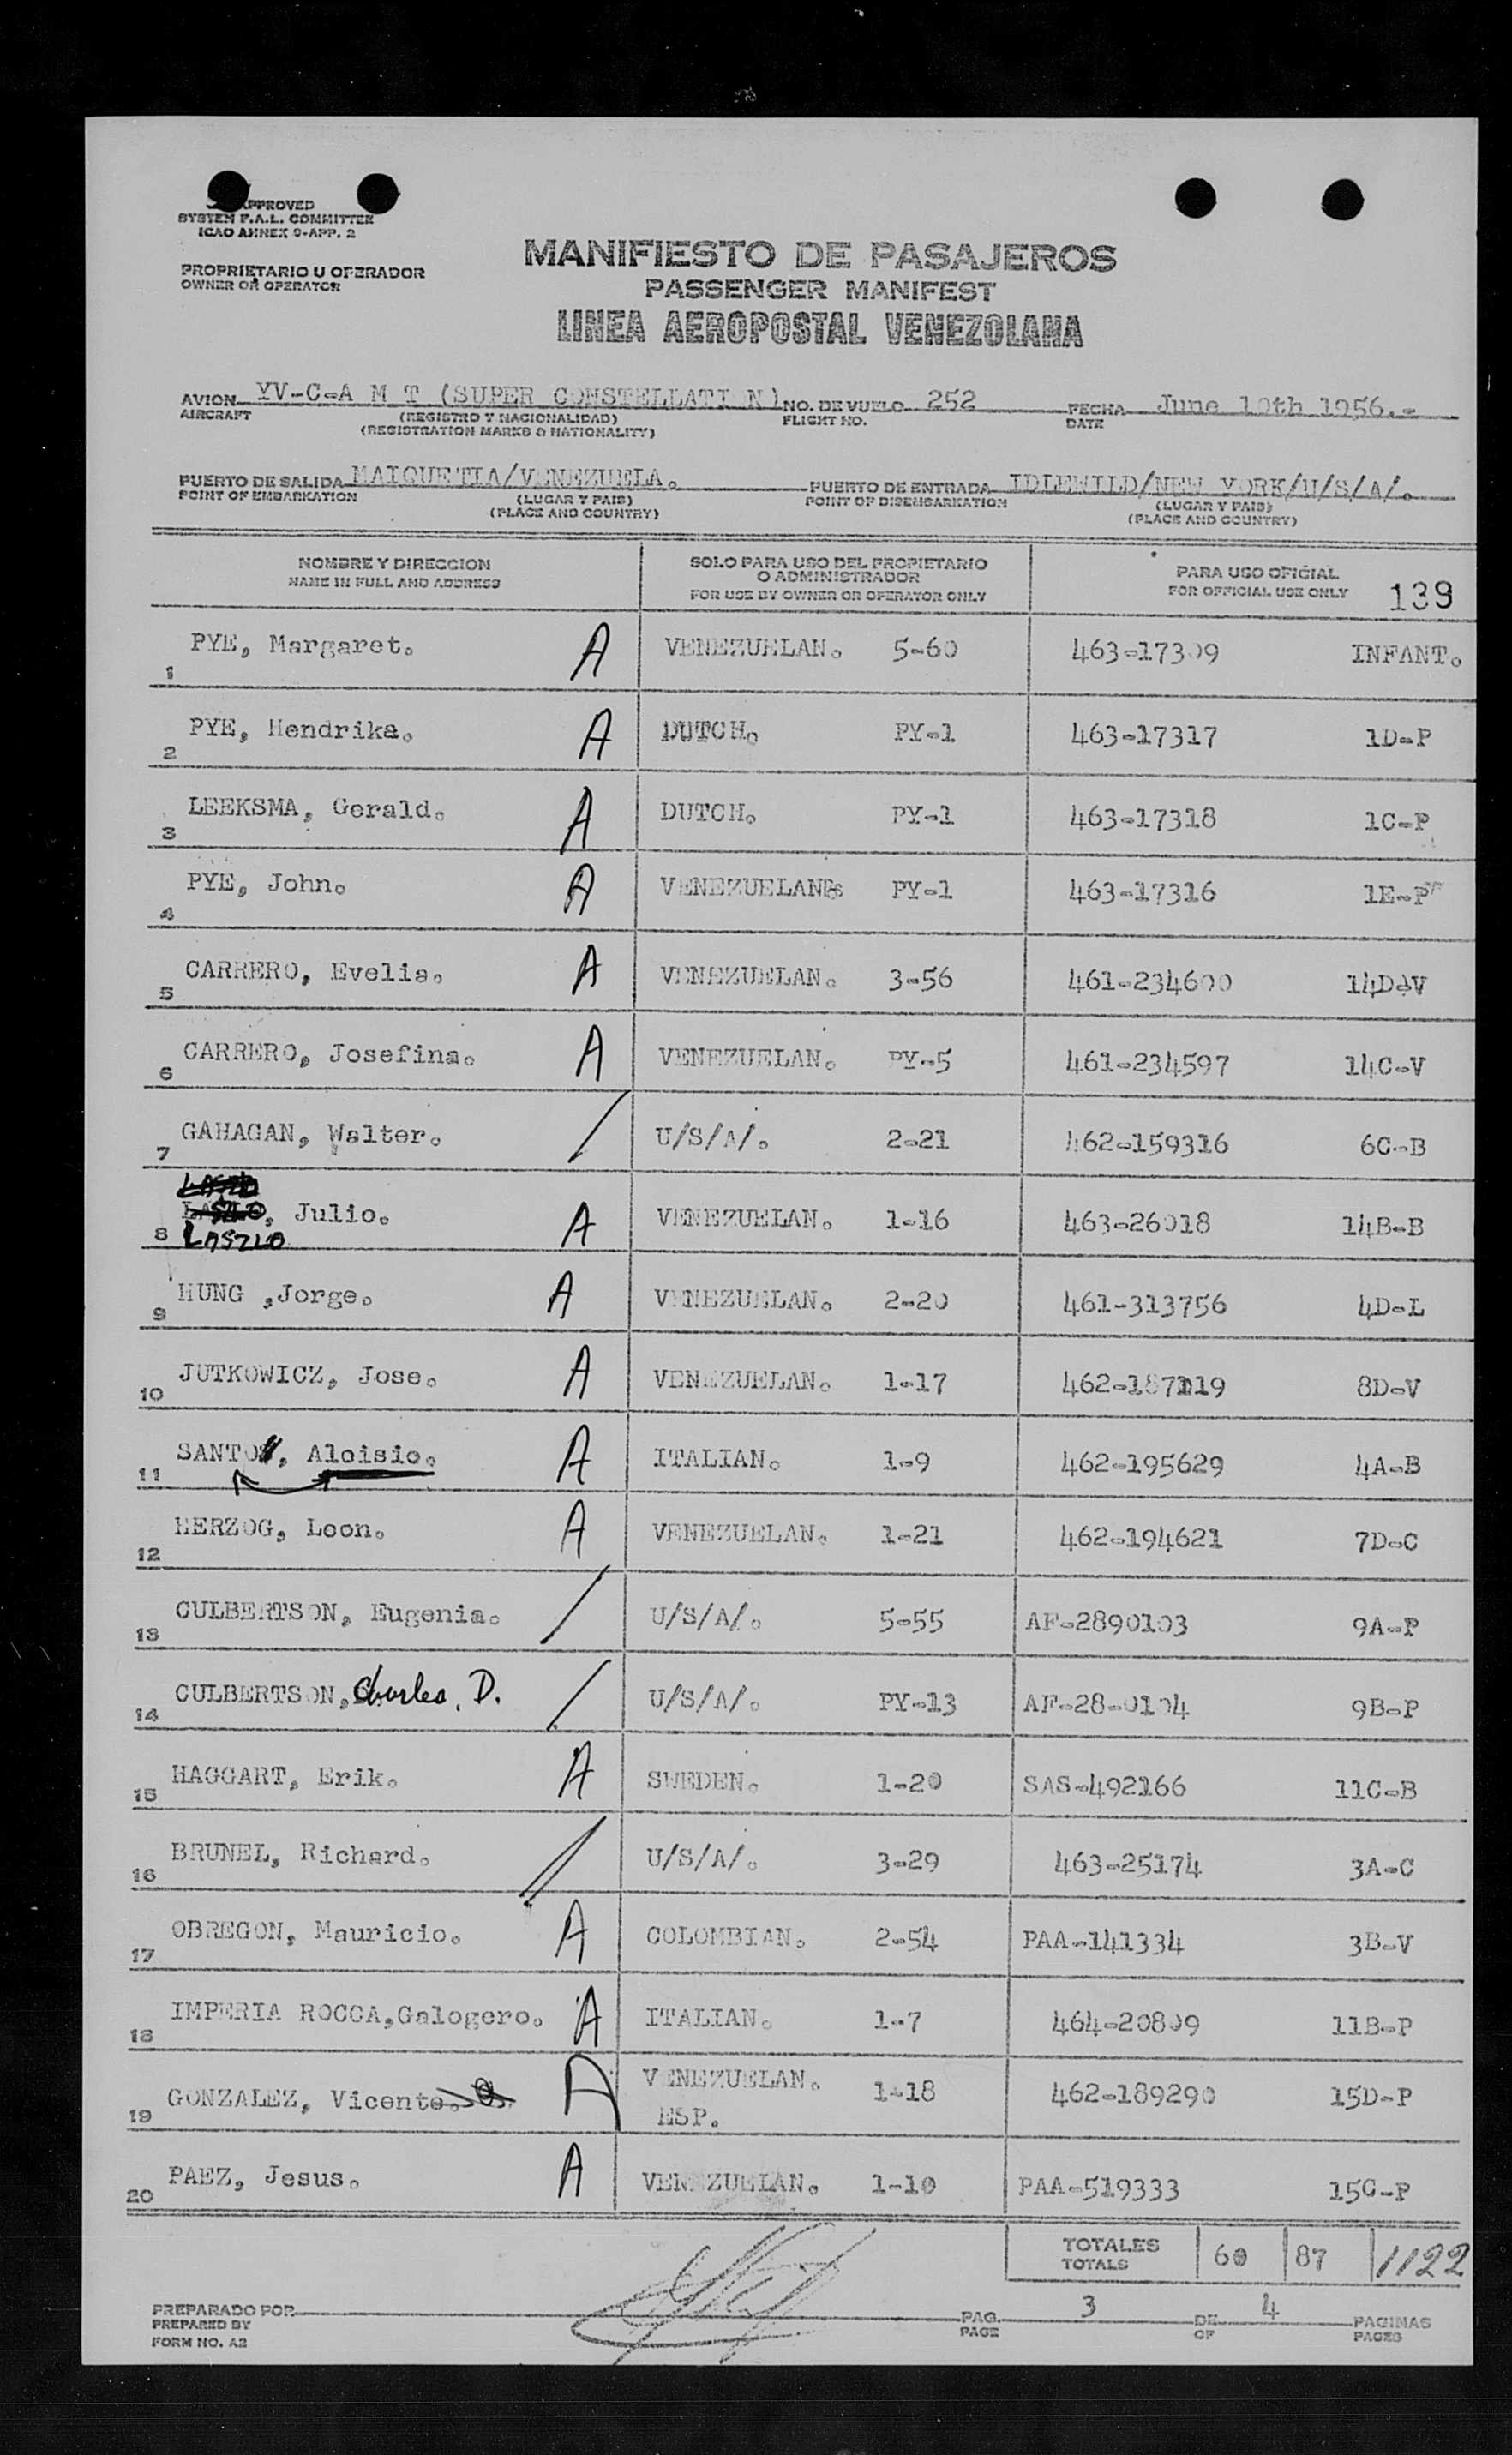 APPROVED
SYSTEM F.A.L. COMMITTEE
ICAO ANNEX 9-APP. 2
PROPRIETARIO U OPERADOR
OWNER OR OPERATOR
MANIFIESTO DE PASAJEROS
PASSENGER MANIFEST
LINEA AEROPOSTAL VENEZOLANA
AVION YV-C-A M T (SUPER CONSTELLATI N) NO. DE VUELO 252 FECHA June 19th 1956.-
AIRCRAFT (REGISTRO Y NACIONALIDAD) FLIGHT NO. DATE
(REGISTRATION MARKS & NATIONALITY)
PUERTO DE SALIDA MAIQUETIA/VENEZUELA. PUERTO DE ENTRADA IDLEWILD/NEW YORK/U/S/A/.
POINT OF EMBARKATION (LUGAR Y PAIS) POINT OF DISEMBARKATION (LUGAR Y PAIS)
(PLACE AND COUNTRY) (PLACE AND COUNTRY)
NOMBRE Y DIRECCION SOLO PARA USO DEL PROPIETARIO O ADMINISTRADOR PARA USO OFICIAL
NAME IN FULL AND ADDRESS FOR USE BY OWNER OR OPERATOR ONLY FOR OFFICIAL USE ONLY 139
1 PYE, Margaret. A VENEZUELAN. 5-60 463-17309 INFANT.
2 PYE, Hendrika. A DUTCH. PY-1 463-17317 1D-P
3 LEEKSMA, Gerald. A DUTCH. PY-1 463-17318 1C-P
4 PYE, John. A VENEZUELAN. PY-1 463-17316 1E-P
5 CARRERO, Evelia. A VENEZUELAN. 3-56 461-234600 14D-V
6 CARRERO, Josefina. A VENEZUELAN. PY-5 461-234597 14C-V
7 GAHAGAN, Walter. / U/S/A/. 2-21 462-159316 6C-B
LASZLO
8 LASZLO, Julio. A VENEZUELAN. 1-16 463-26018 14B-B
LASZLO
9 HUNG ,Jorge. A VENEZUELAN. 2-20 461-313756 4D-L
10 JUTKOWICZ, Jose. A VENEZUELAN. 1-17 462-187119 8D-V
11 SANTO, Aloisio. A ITALIAN. 1-9 462-195629 4A-B
12 HERZOG, Leon. A VENEZUELAN. 1-21 462-194621 7D-C
13 CULBERTSON, Eugenia. / U/S/A/. 5-55 AF-2890103 9A-P
14 CULBERTSON, Charles, D. / U/S/A/. PY-13 AF-28-0104 9B-P
15 HAGGART, Erik. A SWEDEN. 1-20 SAS-492166 11C-B
16 BRUNEL, Richard. // U/S/A/. 3-29 463-25174 3A-C
17 OBREGON, Mauricio. A COLOMBIAN. 2-54 PAA-141334 3B-V
18 IMPERIA ROCCA,Calogero. A ITALIAN. 1-7 464-20809 11B-P
19 GONZALEZ, Vicente. A VENEZUELAN. 1-18 462-189290 15D-P
ESP.
20 PAEZ, Jesus. A VENEZUELAN. 1-10 PAA-519333 15C-P
TOTALES 60 87 1122
TOTALS
PREPARADO POR PAG. 3 DE 4 PAGINAS
PREPARED BY PAGE OF PAGES
FORM NO. A2